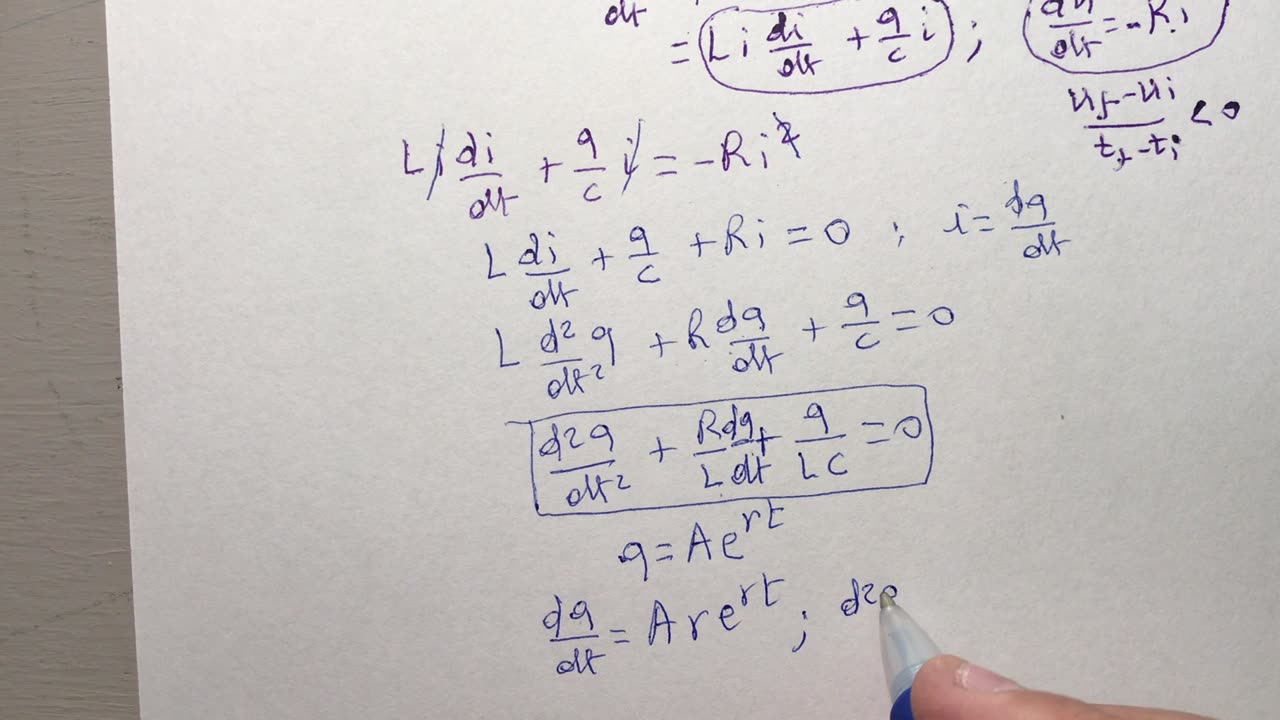 dt
= L i di/dt + q/c i ; du/dt = -Ri
uf - ui / tf - ti < 0
L i di/dt + q/c i = -Ri²
L di/dt + q/c + Ri = 0 ; i = dq/dt
L d²/dt² q + R dq/dt + q/c = 0
d²q/dt² + R/L dq/dt + q/LC = 0
q = Ae^rt
dq/dt = Are^rt ; d²